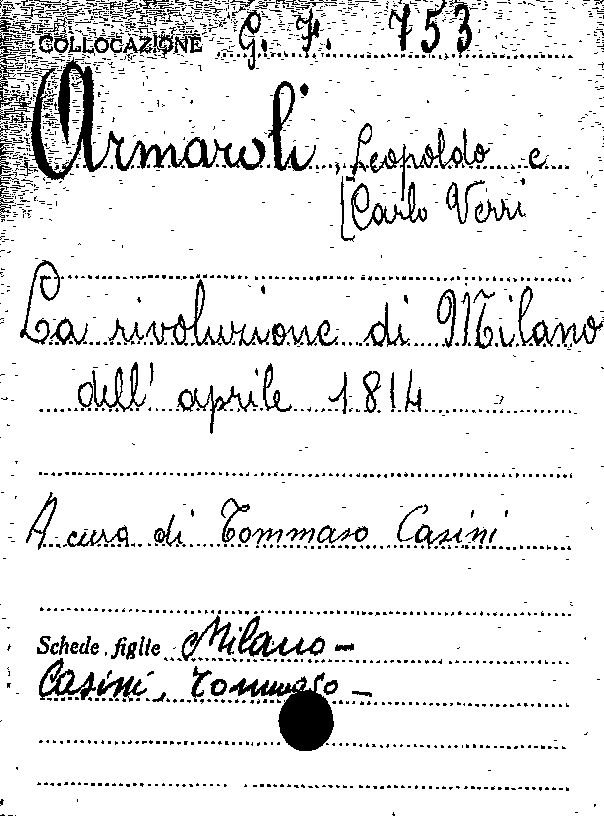 COLLOCAZIONE G. F. 753
Armaroli, Leopoldo e
[Carlo Verri
La rivoluzione di Milano
dell' aprile 1814
A cura di Tommaso Casini
Schede figlie Milano -
Casini, Tommaso -